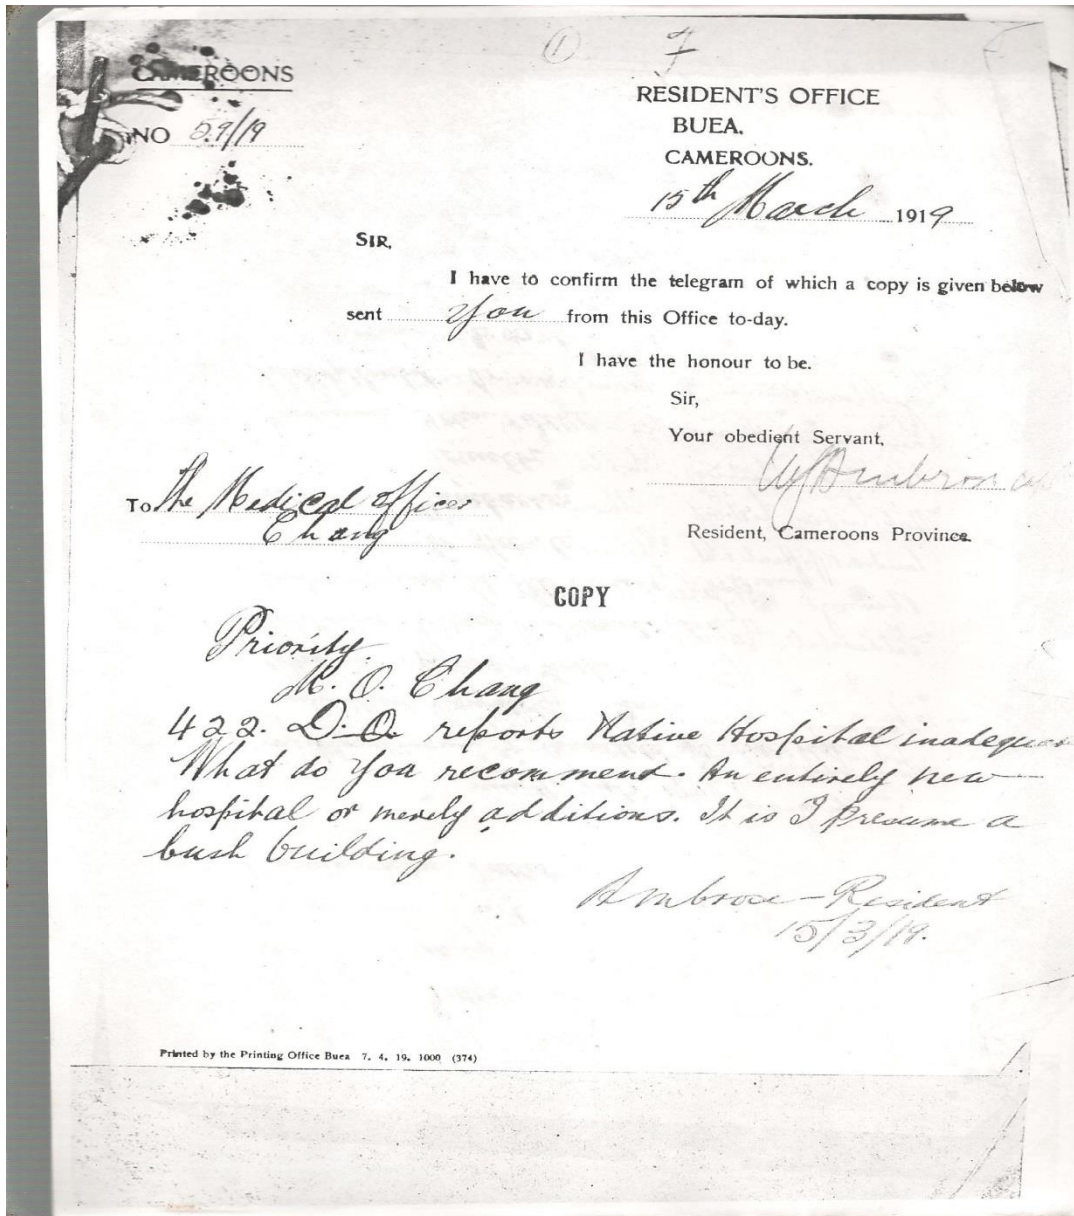 ① 7
CAMEROONS
NO 59/19
RESIDENT'S OFFICE
BUEA.
CAMEROONS.
15th March 1919
SIR,
I have to confirm the telegram of which a copy is given below
sent you from this Office to-day.
I have the honour to be.
Sir,
Your obedient Servant,
Resident, Cameroons Province.
To The Medical Officer
Chang
COPY
Priority.
M. O. Chang
422. D.O. reports Native Hospital inadequa
What do you recommend. An entirely new
hospital or merely additions. It is I presume a
bush building.
Ambrose - Resident
15/3/19.
Printed by the Printing Office Buea 7. 4. 19. 1000 (374)